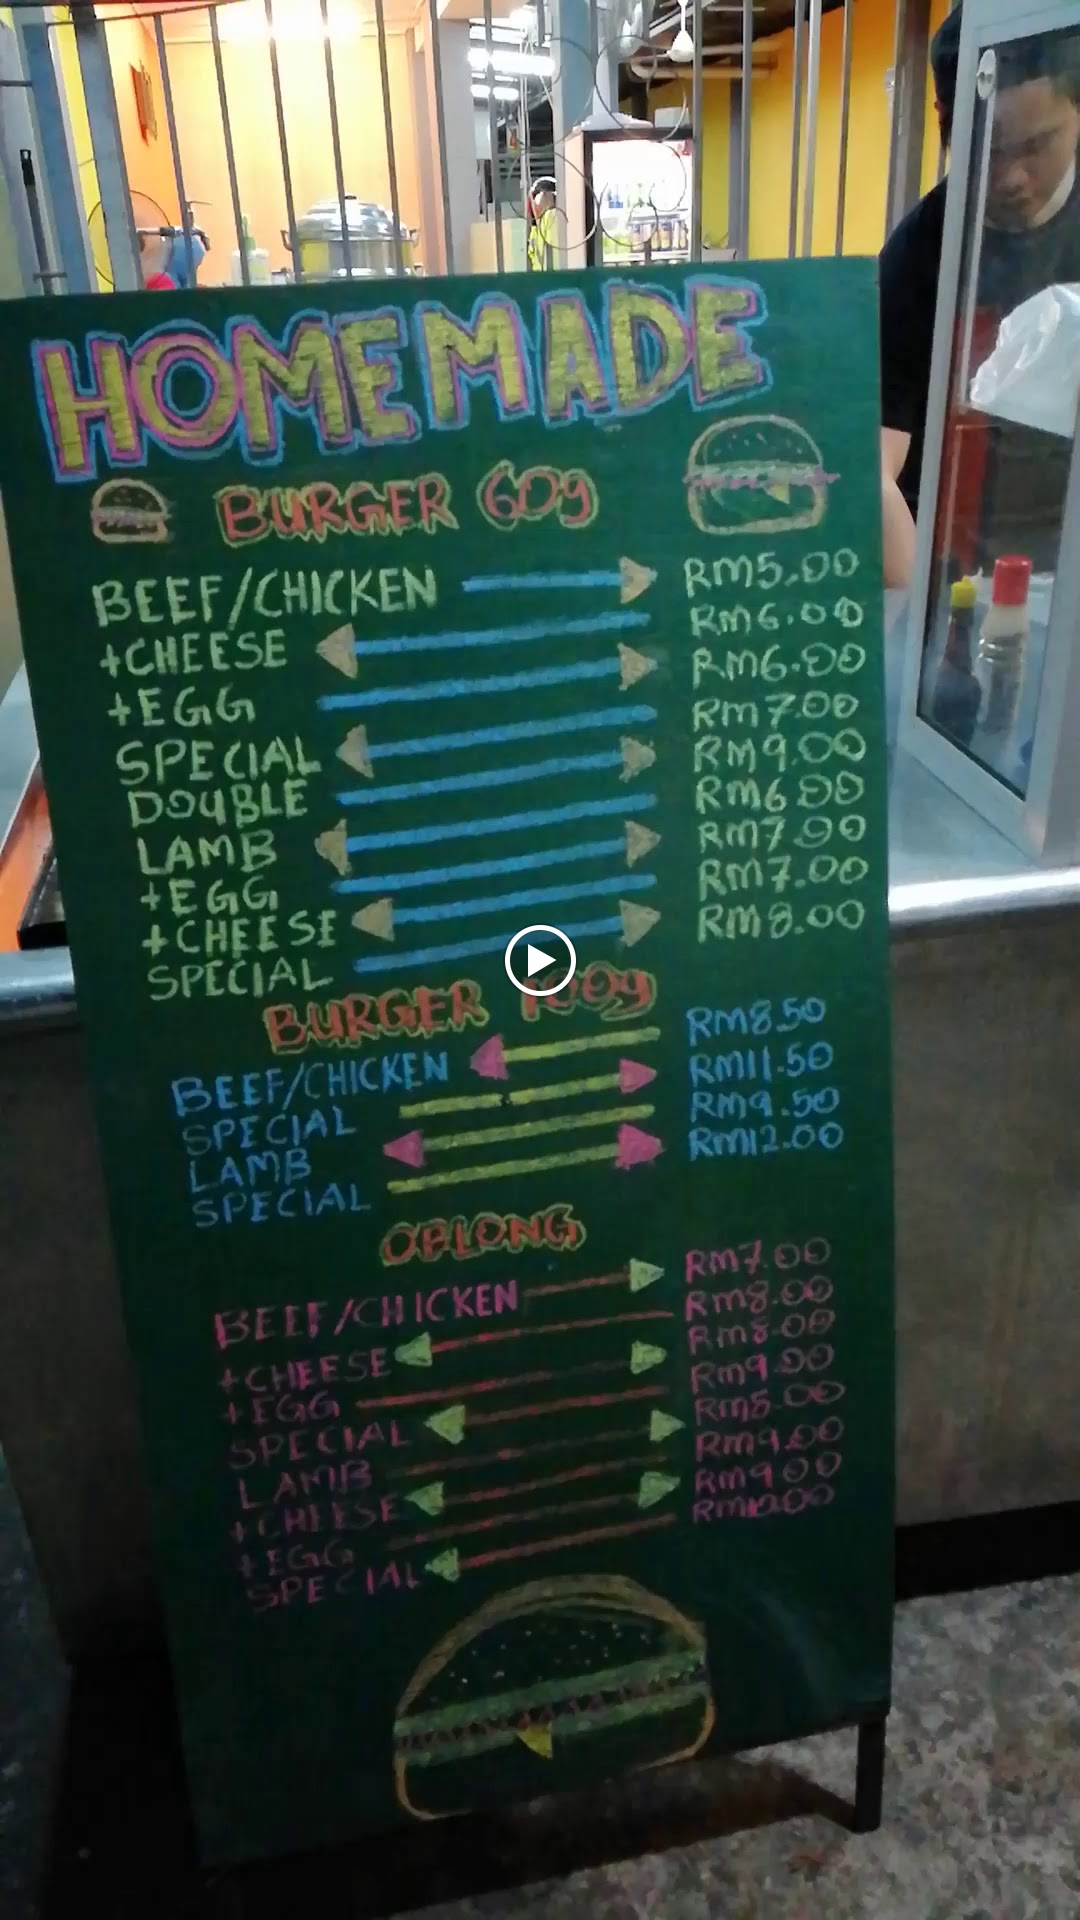 HOMEMADE
BURGER 60g
BEEF/CHICKEN RM5.00
+CHEESE RM6.00
+EGG RM6.00
SPECIAL RM7.00
DOUBLE RM9.00
LAMB RM6.00
+EGG RM7.00
+CHEESE RM7.00
SPECIAL RM8.00
BURGER 100g
BEEF/CHICKEN RM8.50
SPECIAL RM11.50
LAMB RM9.50
SPECIAL RM12.00
OBLONG
BEEF/CHICKEN RM7.00
+CHEESE RM8.00
+EGG RM8.00
SPECIAL RM9.00
LAMB RM8.00
+CHEESE RM9.00
+EGG RM9.00
SPECIAL RM10.00